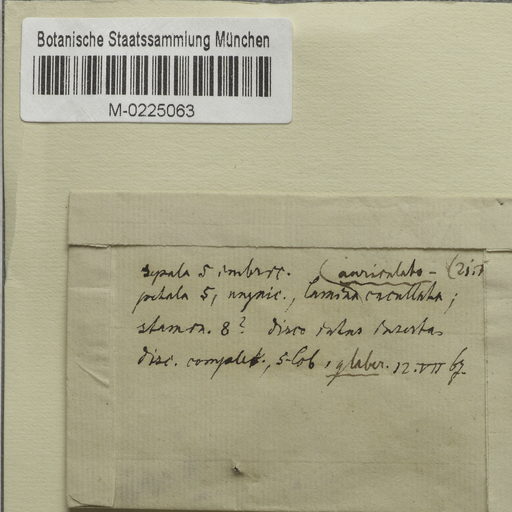 Botanische Staatssammlung München
M-0225063
sepala 5 imbric. (auriculato-
petala 5, unguic., lamina cucullata;
stamin. 8? disco intus inserta
disc. complet., 5-lob, glaber. 12.VII